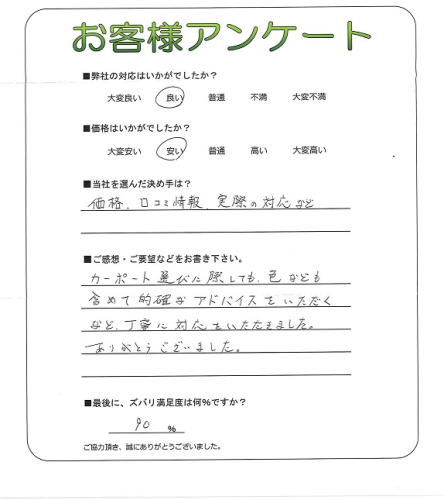 お客様アンケート
■弊社の対応はいかがでしたか?
大変良い 良い 普通 不満 大変不満
■価格はいかがでしたか?
大変安い 安い 普通 高い 大変高い
■当社を選んだ決め手は?
価格、口コミ情報、実際の対応など
■ご感想・ご要望などをお書き下さい。
カーポート選びに際しても、色なども
含めて的確なアドバイスをいただく
など、丁寧に対応をいただきました。
ありがとうございました。
■最後に、ズバリ満足度は何%ですか?
90 %
ご協力頂き、誠にありがとうございました。